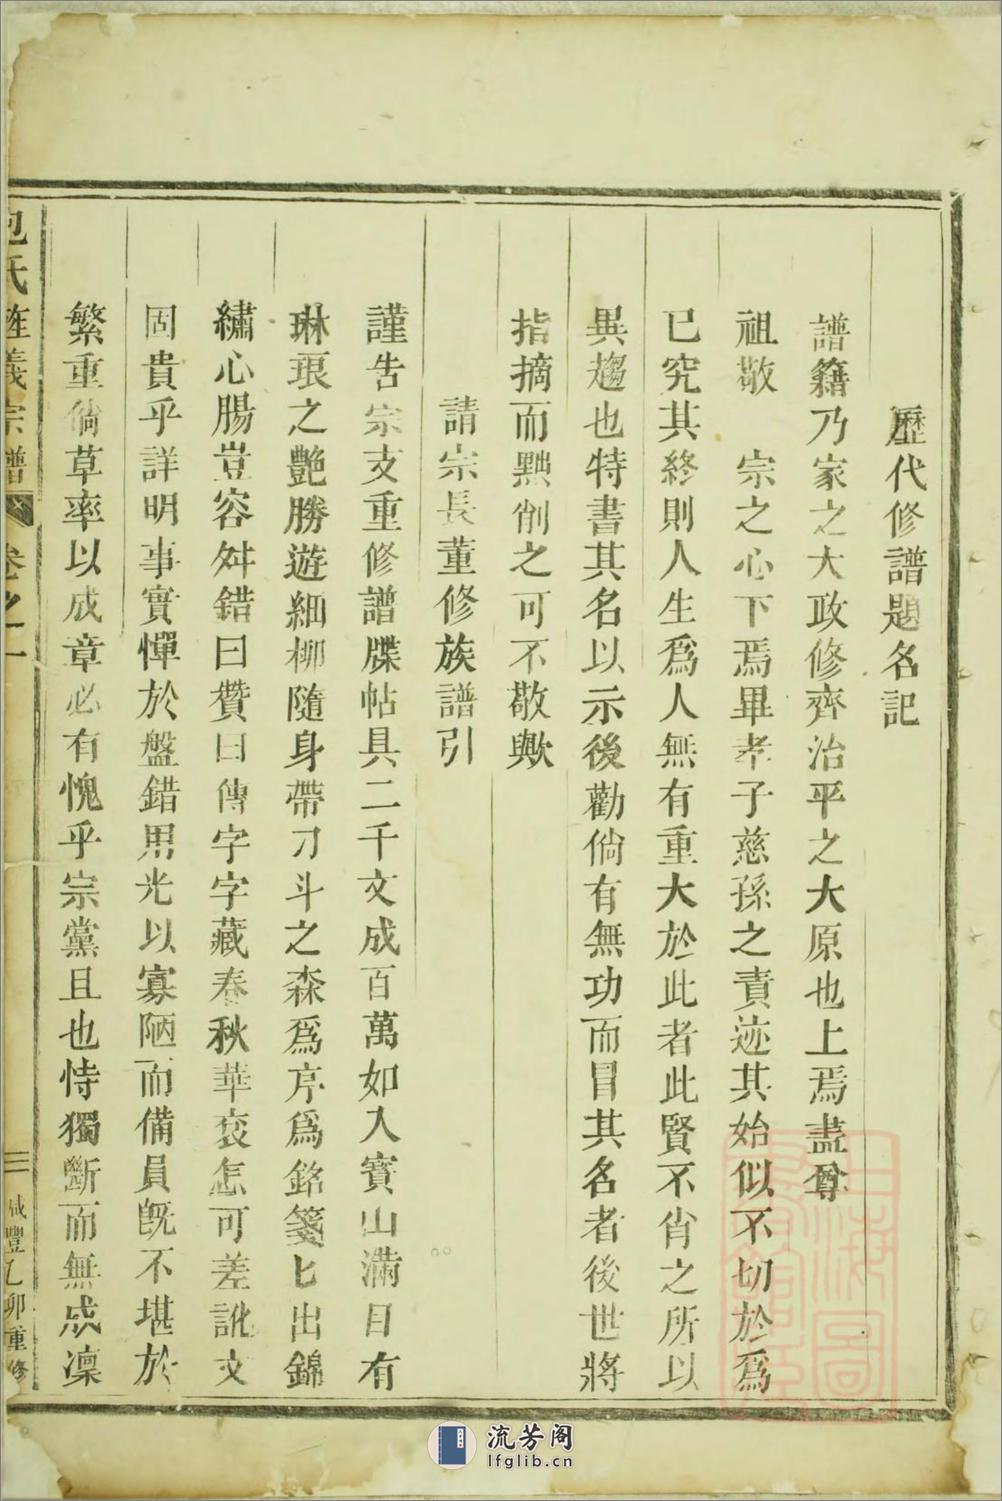 歷代修譜題名記
譜籍乃家之大政修齊治平之大原也上焉盡尊
祖敬　宗之心下焉畢孝子慈孫之責迹其始似不切於爲
已究其終則人生爲人無有重大於此者此賢不肖之所以
異趨也特書其名以示後勸倘有無功而冒其名者後世將
指摘而黜削之可不敬歟
請宗長董修族譜引
謹告宗支重修譜牒帖具二千文成百萬如入寶山滿目有
琳琅之艷勝遊細柳隨身帶刀斗之森爲序爲銘箋匕出錦
繡心腸豈容舛錯曰贊曰傳字字藏春秋華衮怎可差訛文
固貴乎詳明事實憚於盤錯男光以寡陋而備員旣不堪於
繁重倘草率以成章必有愧乎宗黨且也恃獨斷而無成凜
包氏旌義宗譜
卷之一
二
咸豐乙卯重修
上海圖
流芳阁
lfglib.cn